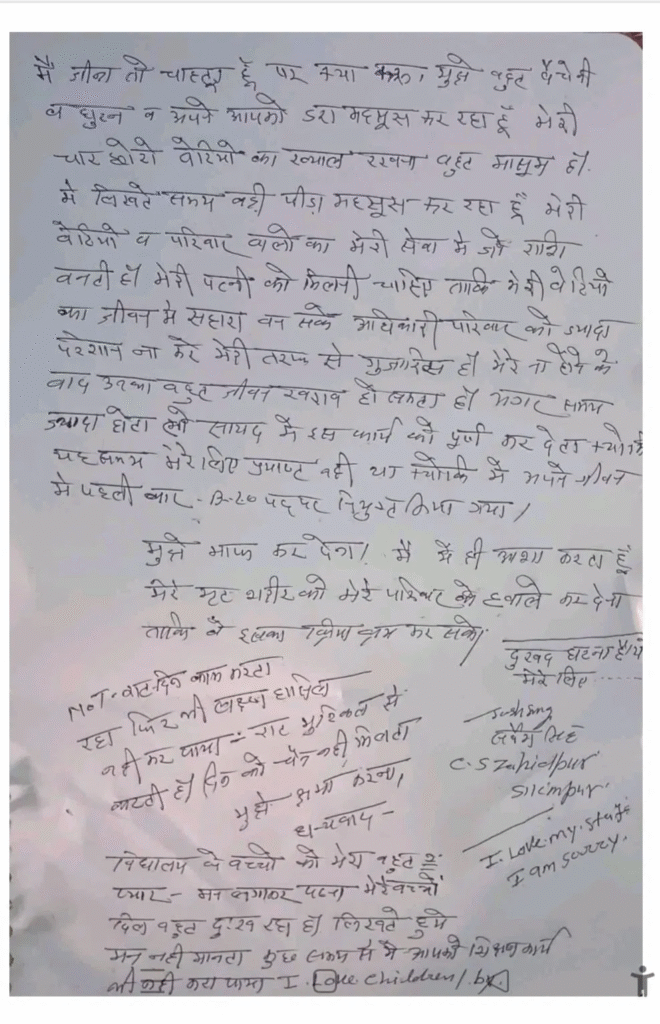 मै जीना तो चाहता हूँ पर क्या करू, मुझे बहुत बैचेनी
व घुटन व अपने आपको डरा महसूस कर रहा हूँ मेरी
चार छोटी बेटियो का ख्याल रखना बहुत मासूम हैं।
मे लिखते समय बड़ी पीड़ा महसूस कर रहा हूँ मेरी
बेटियो व परिवार वालो का मेरी सेवा मे जो राशि
बनती हो मेरी पत्नी को मिलनी चाहिए ताकि मेरी बेटियो
का जीवन मे सहारा बन सके अधिकारी परिवार को ज्यादा
परेशान ना करे मेरी तरफ से गुजारिस हैं। मेरे ना होने के
बाद उनका बहुत जीवन खराब हो सकता हैं। अगर समय
ज्यादा होता तो सायद मै इस कार्य को पूर्ण कर देता क्योकि
यह समय मेरे लिए प्रयाप्ट नही था क्योकि मै अपने जीवन
मे पहली बार B-20 पद पर नियुक्त किया गया।
मुझे माफ कर देना। मै ही अशा करता हूँ
मेरे मृत शरीर को मेरे परिवार के हवाले कर देना
ताकि वे इसका क्रिया क्रम कर सके।
दुखद घटना है ये
मेरे लिए
NOT- रात-दिन काम करता
रहा फिर भी लक्ष्य हासिल
नही कर पाया = रात मुश्किल से
कटती हैं। दिन को चैन नही मिलता
मुझे क्षमा करना,
धन्यवाद -
सर्वेश सिंह
C.S Zahidpur
Silimpur
I. Love. my. staf
I am sorry.
विद्यालय के बच्चो को मेरा बहुत २
प्यार - मन लगाकर पढना मेरे बच्चों
दिल बहुत दुःख रहा हैं। लिखते हुये
मन नही मानता कुछ समय से मै आपको शिक्षण कार्य
भी नही करा पाया I. Love children/ by